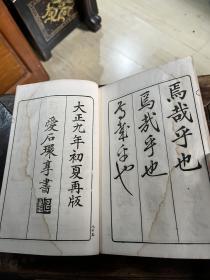 焉哉乎也
焉哉乎也
焉哉乎也
大正九年初夏再版
愛石環享書